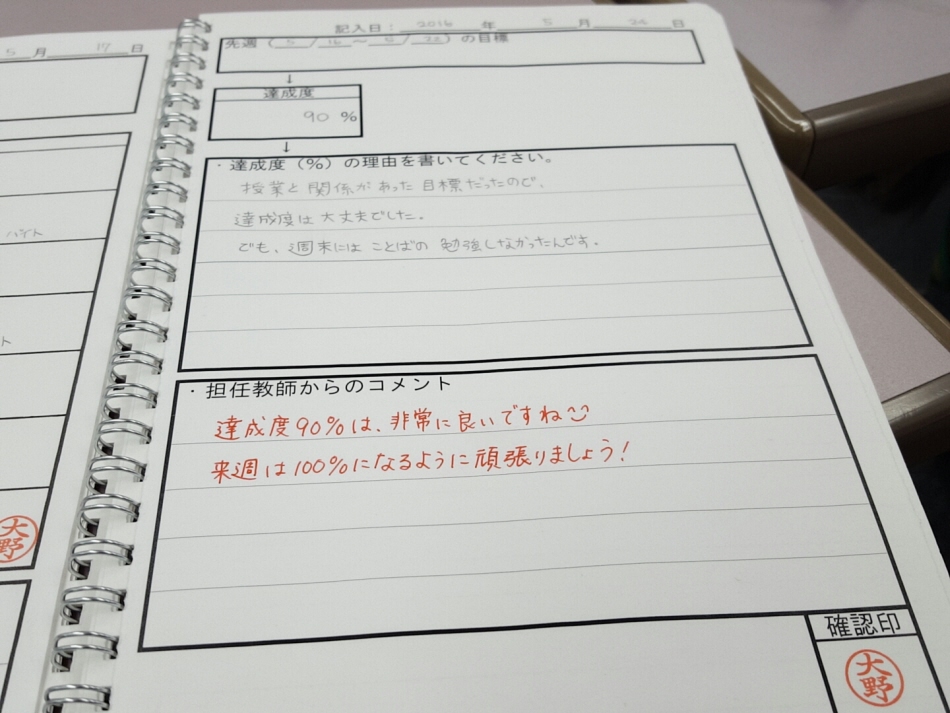 5 月 17 日
バイト
ト
大野
記入日: 2016 年 5 月 24 日
先週 (5/16~5/22) の目標
↓
達成度
90 %
↓
・達成度(%)の理由を書いてください。
授業と関係があった目標だったので、
達成度は大丈夫でした。
でも、週末にはことばの勉強しなかったんです。
・担任教師からのコメント
達成度90%は、非常に良いですね
来週は100%になるように頑張りましょう!
確認印
大野